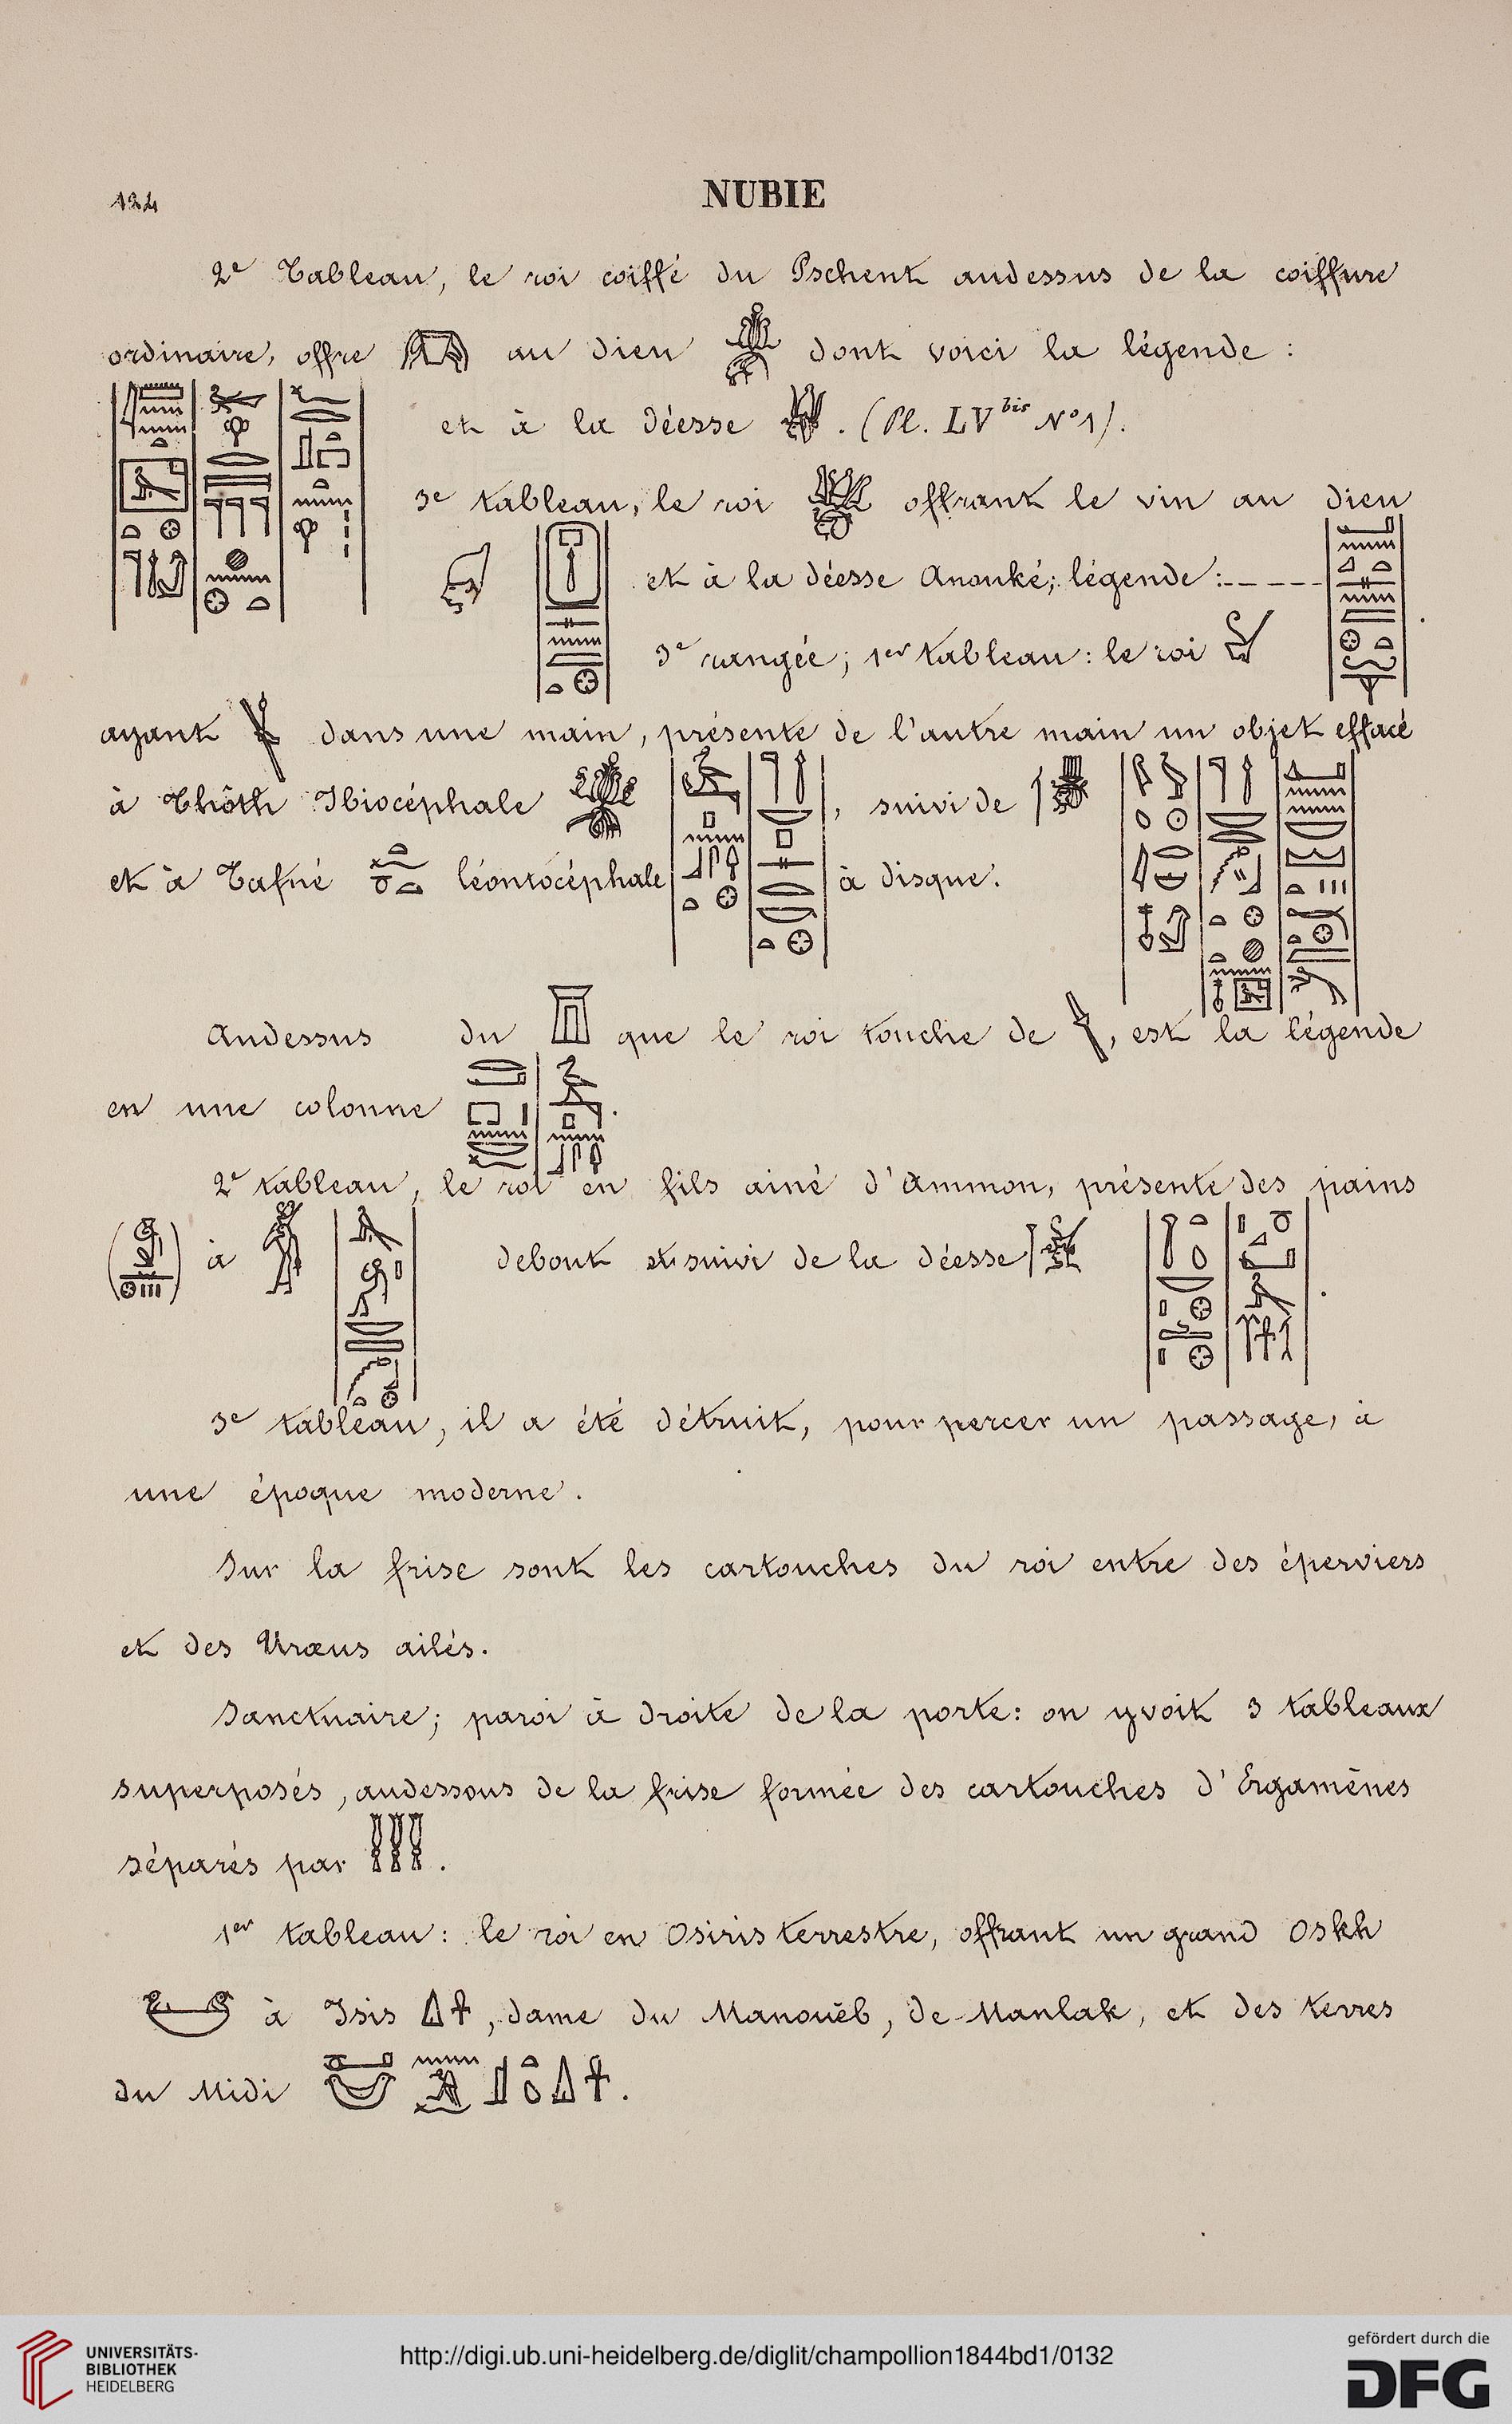 124
NUBIE
2e Tableau, le roi coiffé du Pschent audessus de la coiffure
ordinaire, offre au dieu dont voici la légende :
et à la déesse . (Pl. LV bis N° 1).
3e tableau, le roi offrant le vin au dieu
et à la déesse Anouké; légende :
3e rangée; 1er tableau : le roi
ayant dans une main, présente de l'autre main un objet effacé
à Thôth Ibiocéphale , suivi de
et à Tafné léontocéphale à disque.
Audessus du que le roi touche de , est la légende
en une colonne .
2e tableau, le roi en fils ainé d'Ammon, présente des pains
à debout et suivi de la déesse .
3e tableau, il a été détruit, pour percer un passage, à
une époque moderne.
Sur la frise sont les cartouches du roi entre des éperviers
et des Uraeus ailés.
Sanctuaire; paroi à droite de la porte : on y voit 3 tableaux
superposés, audessous de la frise formée des cartouches d'Ergamènes
séparés par .
1er tableau : le roi en Osiris terrestre, offrant un grand Oskh
à Isis , dame du Manouèb, de Manlak, et des terres
du Midi .
UNIVERSITÄTS-
BIBLIOTHEK
HEIDELBERG
http://digi.ub.uni-heidelberg.de/diglit/champollion1844bd1/0132
gefördert durch die
DFG